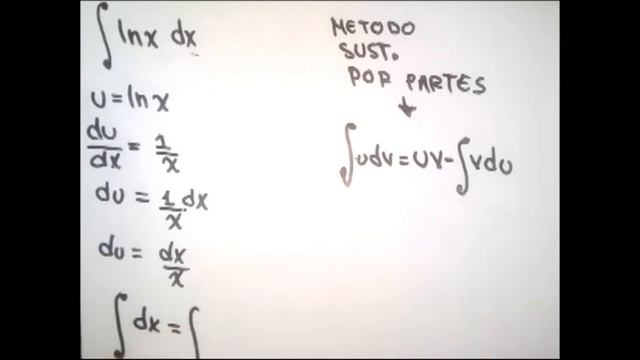 ∫ lnx dx
U = ln x
du/dx = 1/x
du = 1/x dx
du = dx/x
∫ dx = ∫
METODO
SUST.
POR PARTES
∫ u dv = UV - ∫ v du